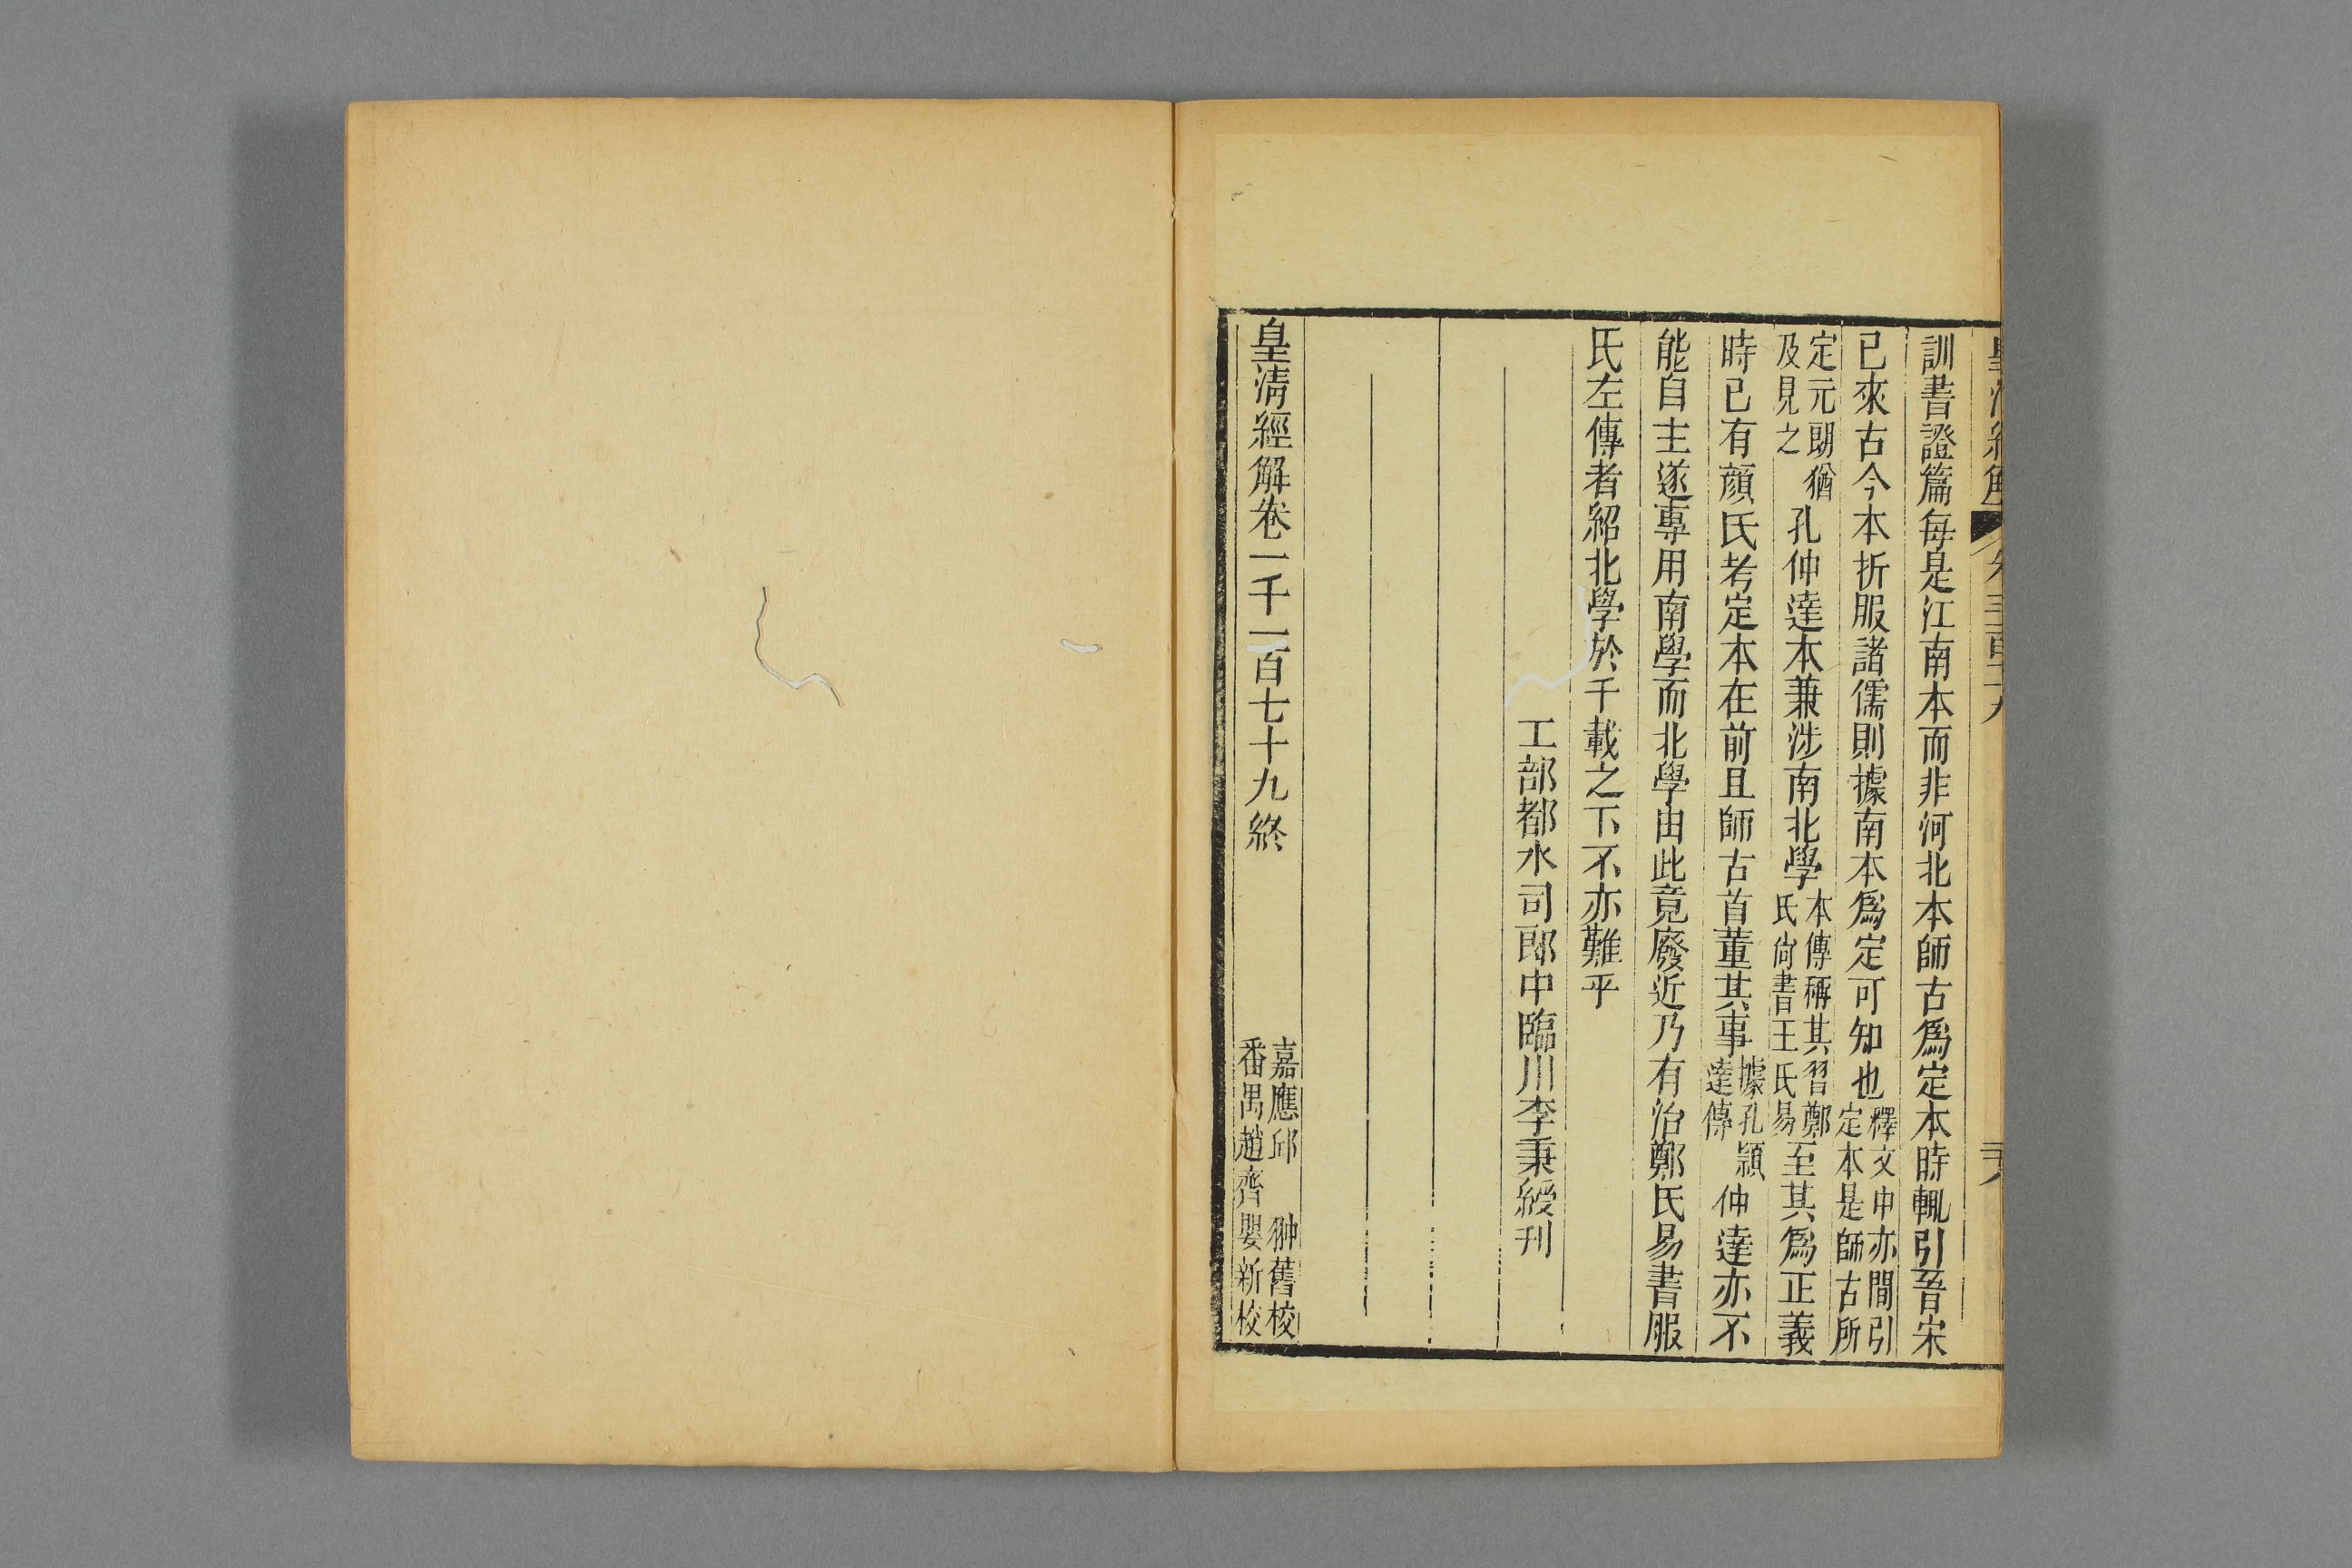 訓書證篇每是江南本而非河北本師古爲定本時輒引晉宋
已來古今本折服諸儒則據南本爲定可知也釋文中亦間引定本是師古所
定元朗猶及見之孔仲達本兼涉南北學本傳稱其習鄭氏尚書王氏易至其爲正義
時已有顏氏考定本在前且師古首董其事據孔穎達傳仲達亦不
能自主遂專用南學而北學由此竟廢近乃有治鄭氏易書服
氏左傳者紹北學於千載之下不亦難乎
工部都水司郎中臨川李秉綬刊
皇清經解卷一千一百七十九終
嘉應邱翀舊校
番禺趙齊嬰新校